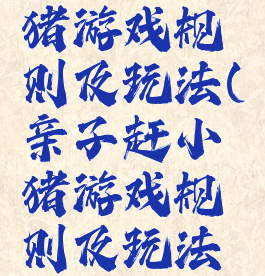 猪游戏规
则及玩法(
亲子赶小
猪游戏规
则及玩法